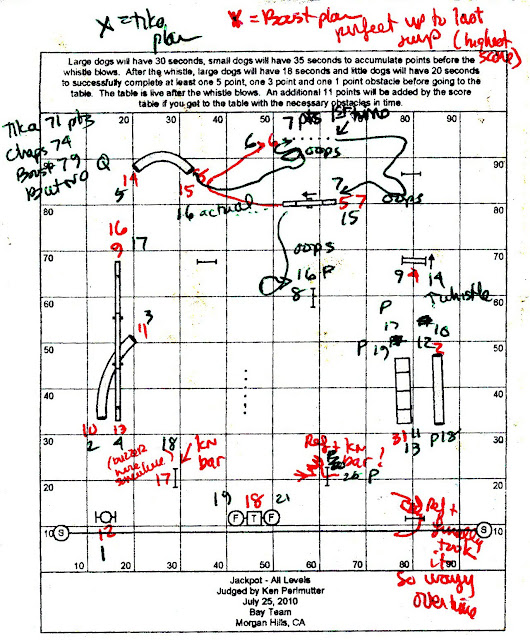 X = Tika plan
X = Boost plan
perfect up to last
jump (highest
score)
Large dogs will have 30 seconds, small dogs will have 35 seconds to accumulate points before the
whistle blows. After the whistle, large dogs will have 18 seconds and little dogs will have 20 seconds
to successfully complete at least one 5 point, one 3 point and one 1 point obstacle before going to the
table. The table is live after the whistle blows. An additional 11 points will be added by the score
table if you get to the table with the necessary obstacles in time.
10 20 30 40 50 60 70 80 90
Tika 71 pts
Chaps 74
Boost 79
But NO Q
90 90
7 pts
6 6
oops
14
5
15
7
5 7
15
oops
80 80
16 actual
16
9
17
oops
70 70
16 P
8
9 4 14
whistle
60 60
3
11
P
17
10
12
P 19
2
50 50
40 40
10
2
13
4
18
kn
bar
Ref +
kn
bar?
31
11
13
P18
30 30
(buzzer
here
17
20 P
20 20
19 18 21
F T F
S S
12
1
10 10
Ref +
finally
took
it
so way
overtime
10 20 30 40 50 60 70 80
Jackpot - All Levels
Judged by Ken Perlmutter
July 25, 2010
Bay Team
Morgan Hills, CA